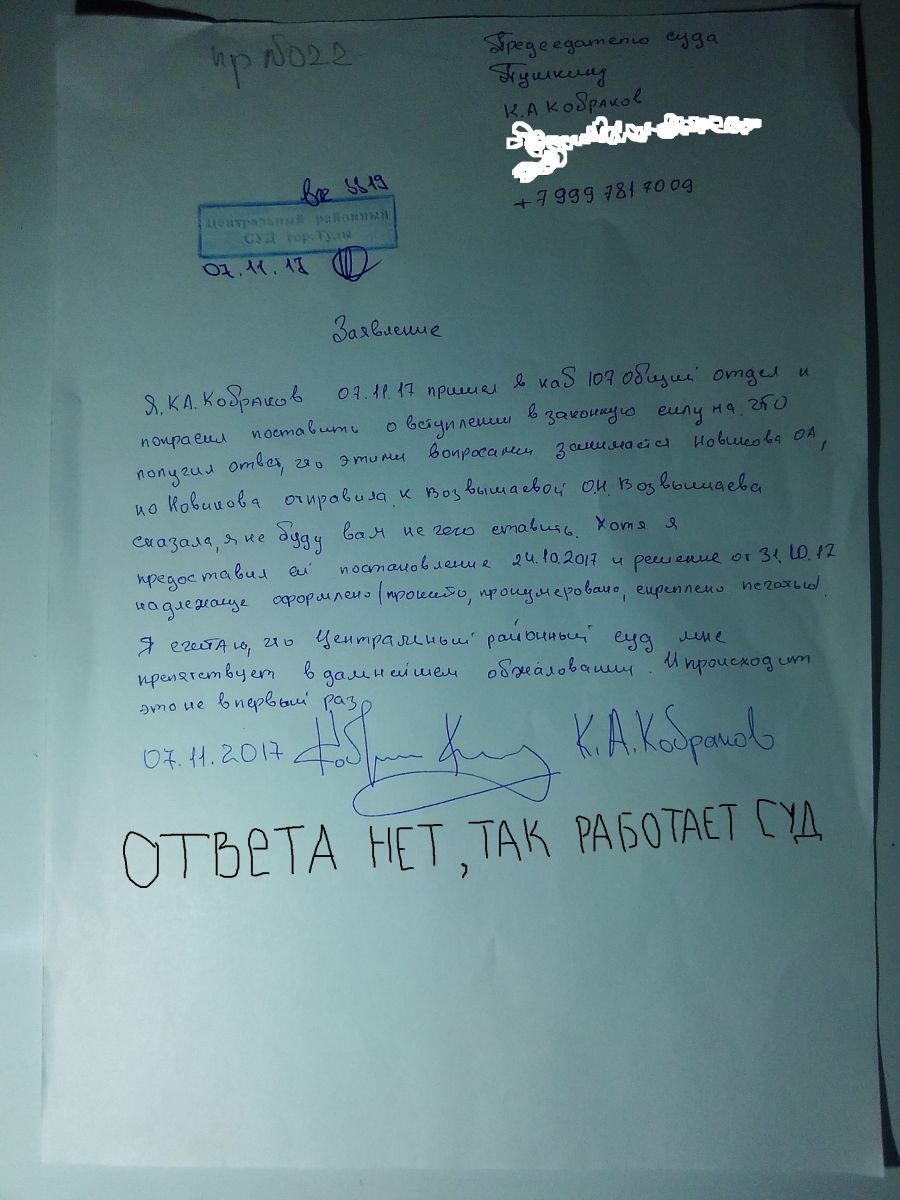 пр №022
Председателю суда
Пушкину
К.А.Кобраков
+7 999 781 70 09
вх 3819
Центральный районный
СУД гор.Тулы
07.11.17
Заявление
Я, К.А.Кобраков 07.11.17 пришел в каб 107 Общий отдел и
попрасил поставить о вступлении в законную силу на. это
получил ответ, что этими вопросами занимается Новикова ОА,
но Новикова отправила к Возвышаевой О.Н. Возвышаева
сказала, я не буду вам не чего ставить. Хотя я
предоставил ей постановление 24.10.2017 и решение от 31.10.17
надлежаще оформлено (прошито, пронумеровано, скреплено печатью)
Я считаю, что Центральный районный суд мне
препятствует в далнейшем обжаловании. И происходит
это не в первый раз
07.11.2017 К.А.Кобраков
ОТВЕТА НЕТ, ТАК РАБОТАЕТ СУД